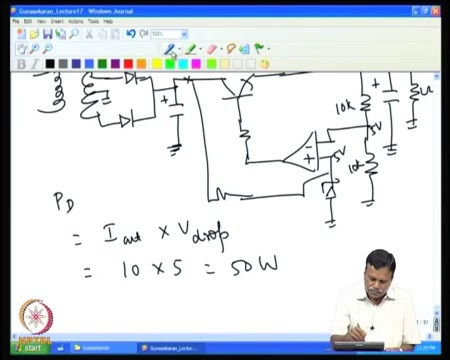 Gunasekaran_Lecture17 - Windows Journal
File Edit View Insert Actions Tools Help
100%
B
+
+
10k
5V
5V
10k
P_D
= I_out × V_drop
= 10 × 5 = 50 W
start
Gunasekaran
Gunasekaran_Lectu...